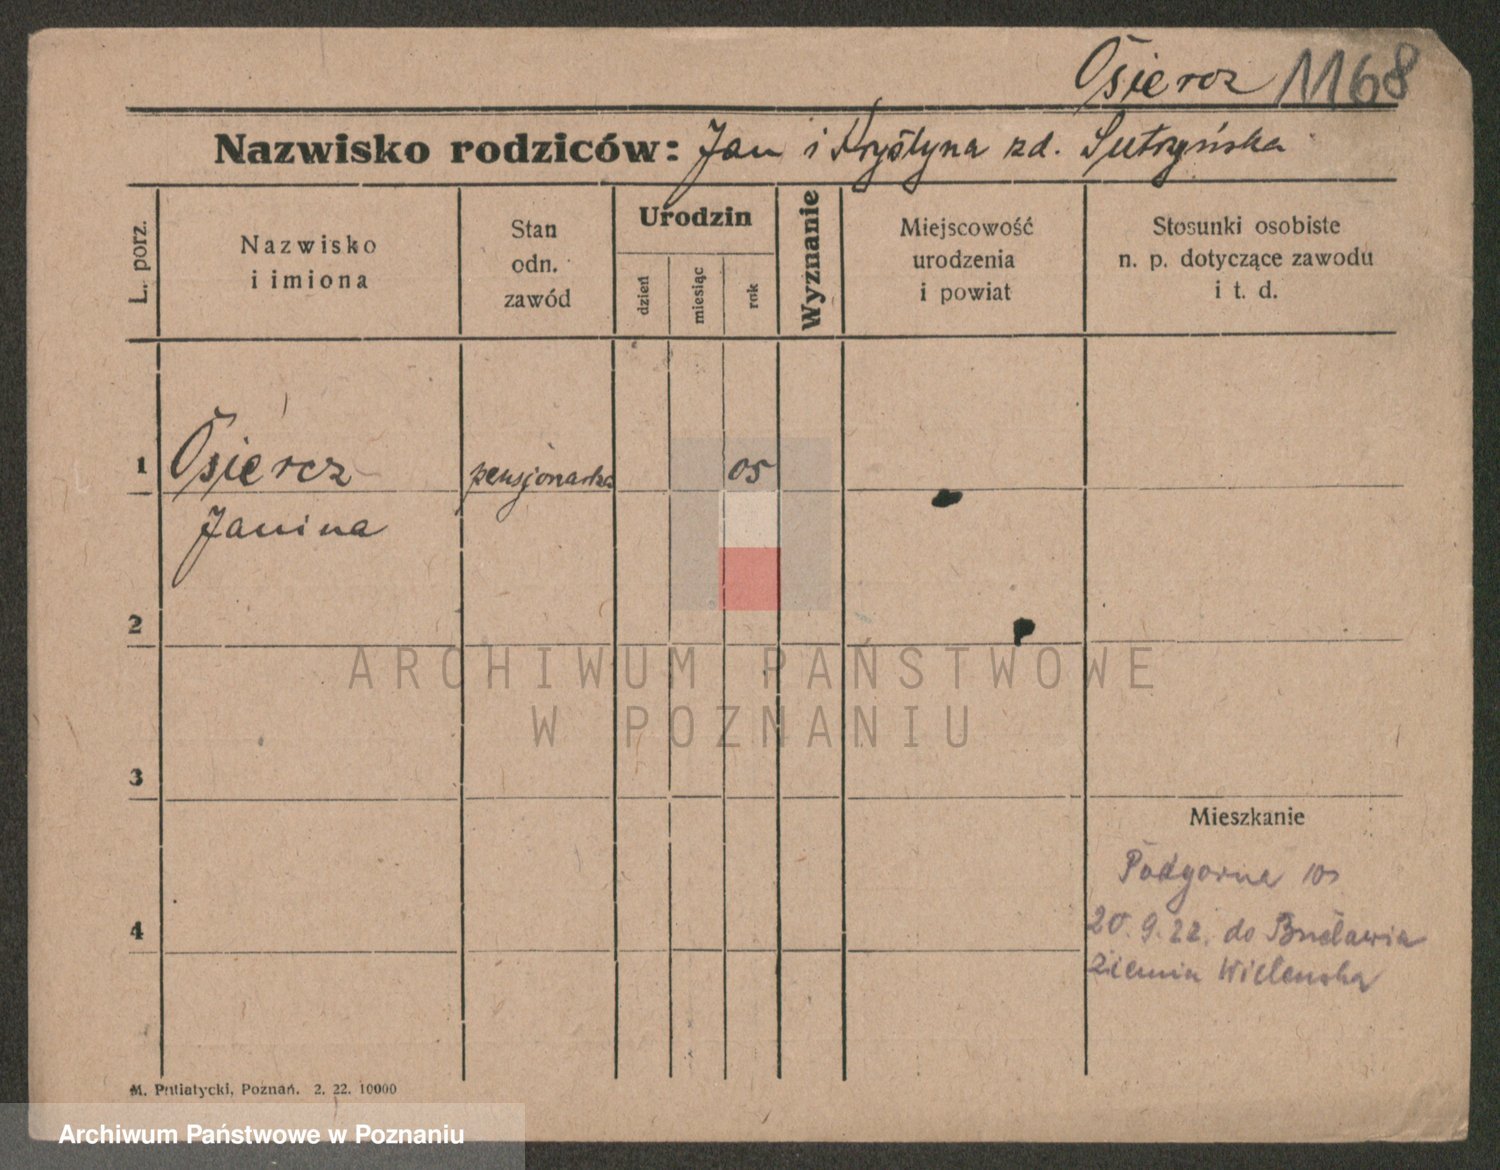 Osiercz 1168
Nazwisko rodziców: Jan i Krystyna zd. Sutrzyńska
L. porz.
Nazwisko
i imiona
Stan
odn.
zawód
Urodzin
dzień
miesiąc
rok
Wyznanie
Miejscowość
urodzenia
i powiat
Stosunki osobiste
n. p. dotyczące zawodu
i t. d.
1 Osiercz pensjonarka 05
Janina
2
ARCHIWUM PAŃSTWOWE
W POZNANIU
3
Mieszkanie
Podgorna 10
4
20. 9. 22. do
ziemia Wilenska
M. Putiatycki, Poznań. 2. 22. 10000
Archiwum Państwowe w Poznaniu